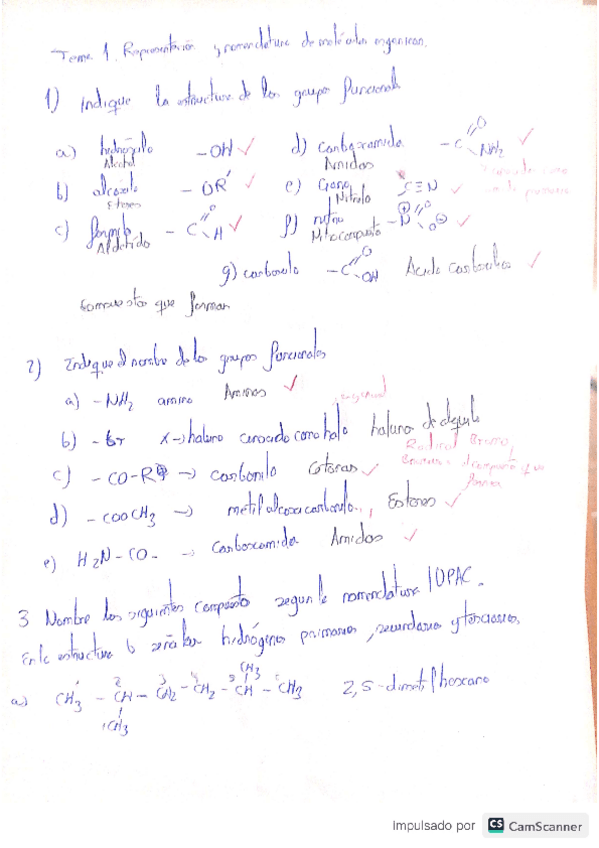 Tema 1. Representación y nomenclatura de moléculas orgánicas.
1) Indique la estructura de los grupos funcionales
a) hidroxilo -OH ✓ d) carboxamida -C O NH2 ✓
Alcohol Amidas
b) alcoxilo -OR' ✓ e) Ciano C≡N ✓
Éteres Nitrilo
c) formilo -C O H ✓ f) nitro -N O O ✓
Aldehído Nitrocompuesto
g) carboxilo -C O OH Ácido Carboxílico ✓
compuestos que forman
2) Indique el nombre de los grupos funcionales
a) -NH2 amino Aminas ✓
b) -Br X→haluro conocido como halo haluro de alquilo
Radical Bromo
c) -CO-R → carbonilo Cetonas ✓
d) -COOCH3 → Ésteres ✓
e) H2N-CO- → Carboxamida Amidas ✓
3 Nombre los siguientes compuesto segun la nomenclatura IUPAC.
En la estructura b señalar hidrógenos primarios, secundarios y terciarios.
CH3
a) CH3 - CH - CH2 - CH2 - CH - CH3 2,5-dimetilhexano
CH3
Impulsado por CS CamScanner